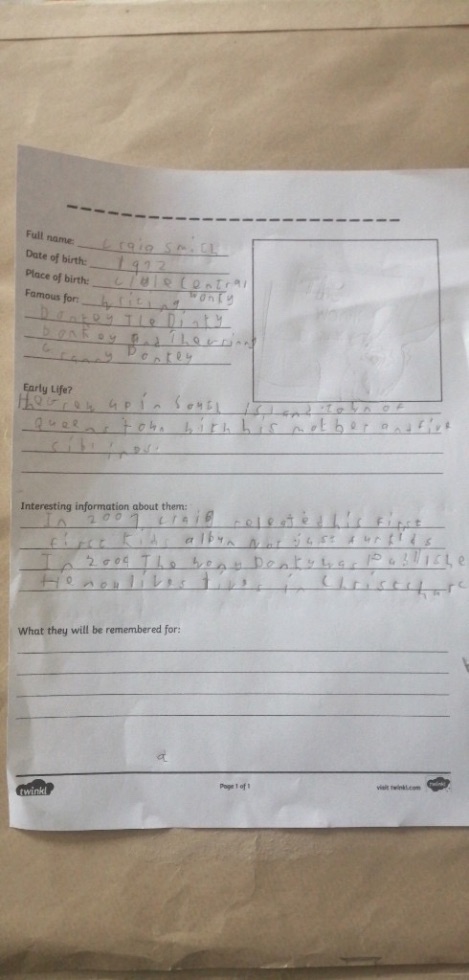 Full name: Craig Smith
Date of birth: 1972
Place of birth: Clyde Central
Famous for: Writing Wonky
Donkey The Dinky
Donkey and
Granny Donkey
Early Life?
He Grew up in South Island town of
queens town with his mother and five
siblings.
Interesting information about them:
In 2007 craig releated his first
first kids album Not just for kids
In 2009 The wony Donkey was Publishe
He now lives in Christchurc
What they will be remembered for:
a
twinkl
Page 1 of 1
visit twinkl.com
twinkl